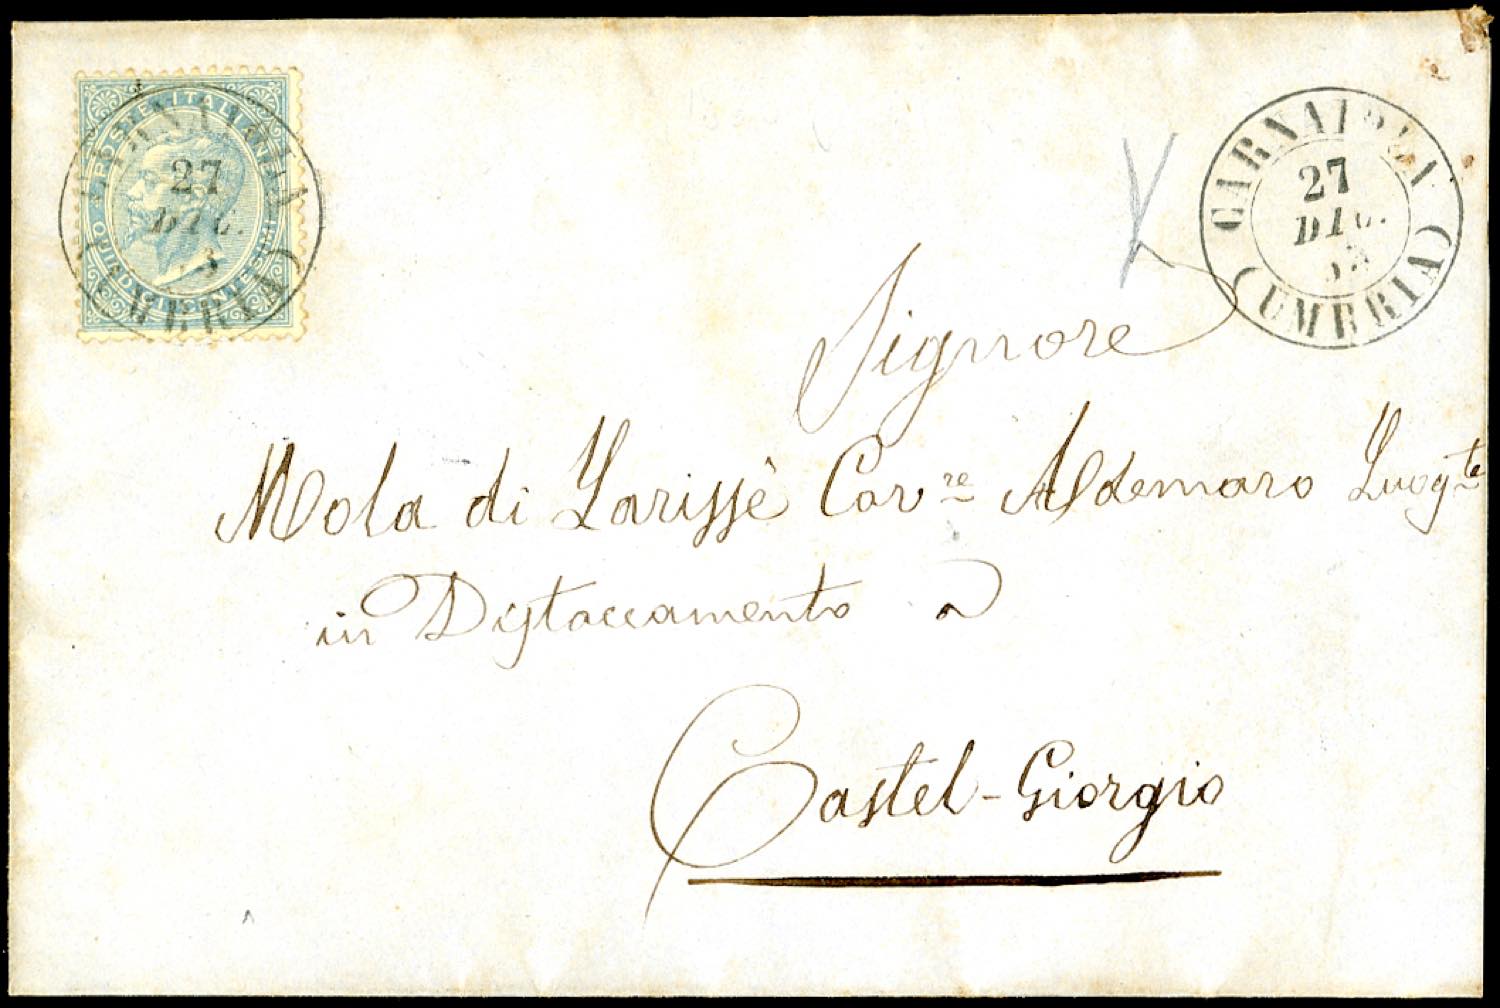 POSTE ITALIANE
27
DIC.
(UMBRIA)
CARNAIOLA
27
DIC.
(UMBRIA)
Signore
Mola di Larissè Cav.re Aldemaro Luogte
in Distaccamento a
Castel-Giorgio